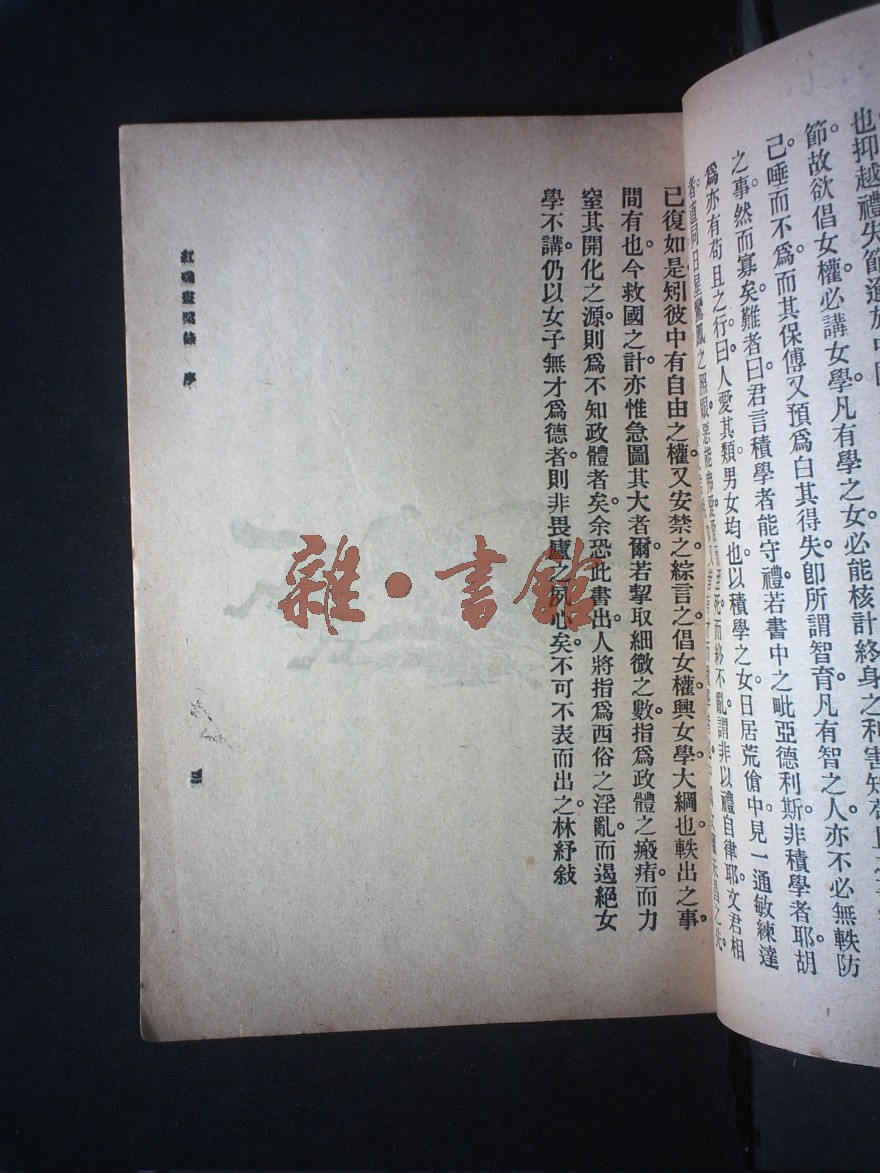 也抑越禮失節
節。故欲倡女權。必講女學。凡有學之女。必能核計終身之利害。知
己。唾而不爲。而其保傅又預爲白其得失。卽所謂智育。凡有智之人。亦不必無軼防
之事。然而寡矣。難者曰。君言積學者能守禮。若書中之毗亞德利斯。非積學者耶。胡
爲亦有苟且之行。曰。人愛其類。男女均也。以積學之女。日居荒傖中。見一通敏練達
者。直同日星鸞鳳之照眼。惡能弗愛。愛而至死。而終不亂。謂非以禮自律耶。文君相
已復如是。矧彼中有自由之權。又安禁之。綜言之。倡女權。興女學。大綱也。軼出之事。
間有也。今救國之計。亦惟急圖其大者爾。若挈取細微之數。指爲政體之瘢痏。而力
窒其開化之源。則爲不知政體者矣。余恐此書出。人將指爲西俗之淫亂。而遏絕女
學不講。仍以女子無才爲德者。則非畏廬之夙心矣。不可不表而出之。林紓敍
紅礁畫槳錄 序
三
雜·書館